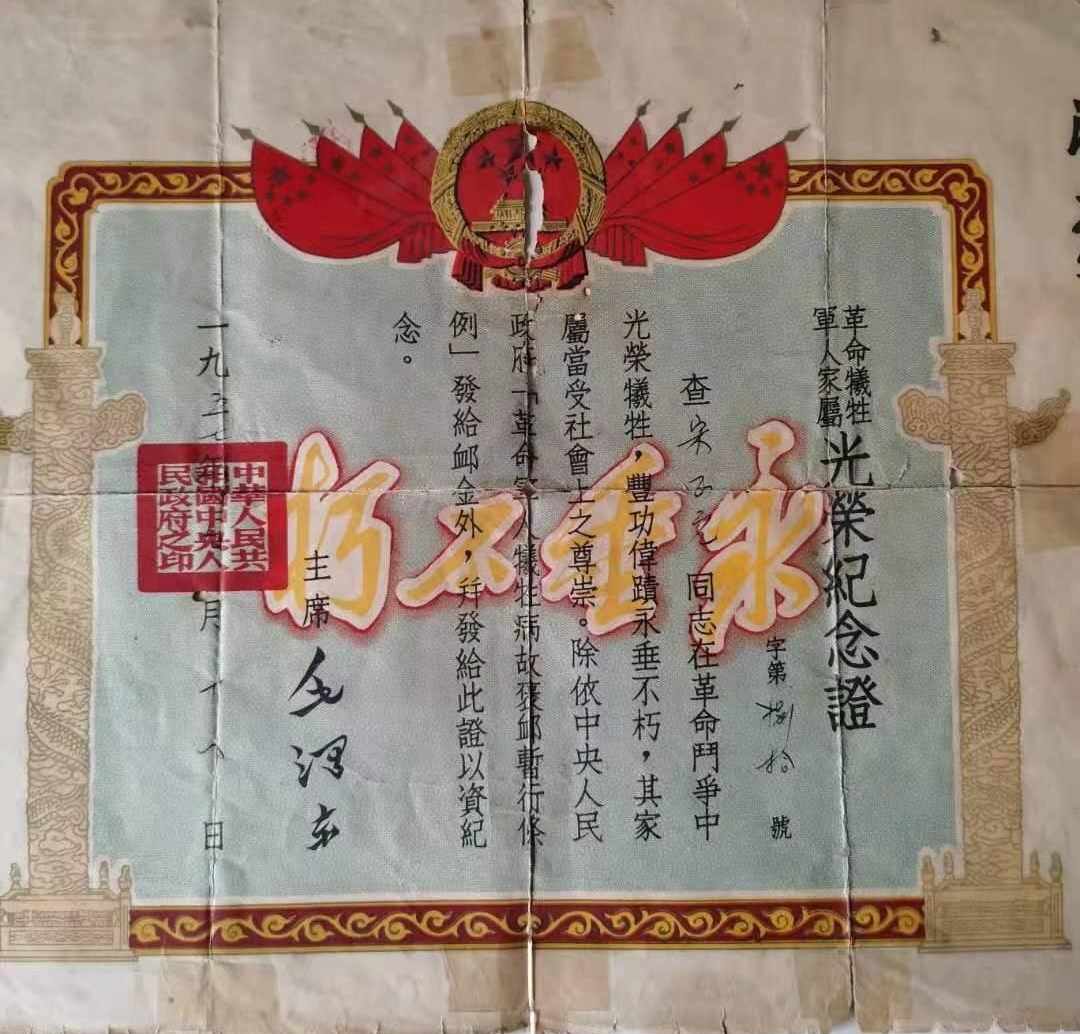 革命犧牲
軍人家屬
光榮紀念證
字第捌拾號
查宋 同志在革命鬥爭中
光榮犧牲，豐功偉蹟永垂不朽，其家
屬當受社會上之尊崇。除依中央人民
政府「革命軍人犧牲病故褒卹暫行條
例」發給卹金外，幷發給此證以資紀
念。
主席 毛澤東
一九五 年 月十八日
永垂不朽
中華人民共
和國中央人
民政府之印